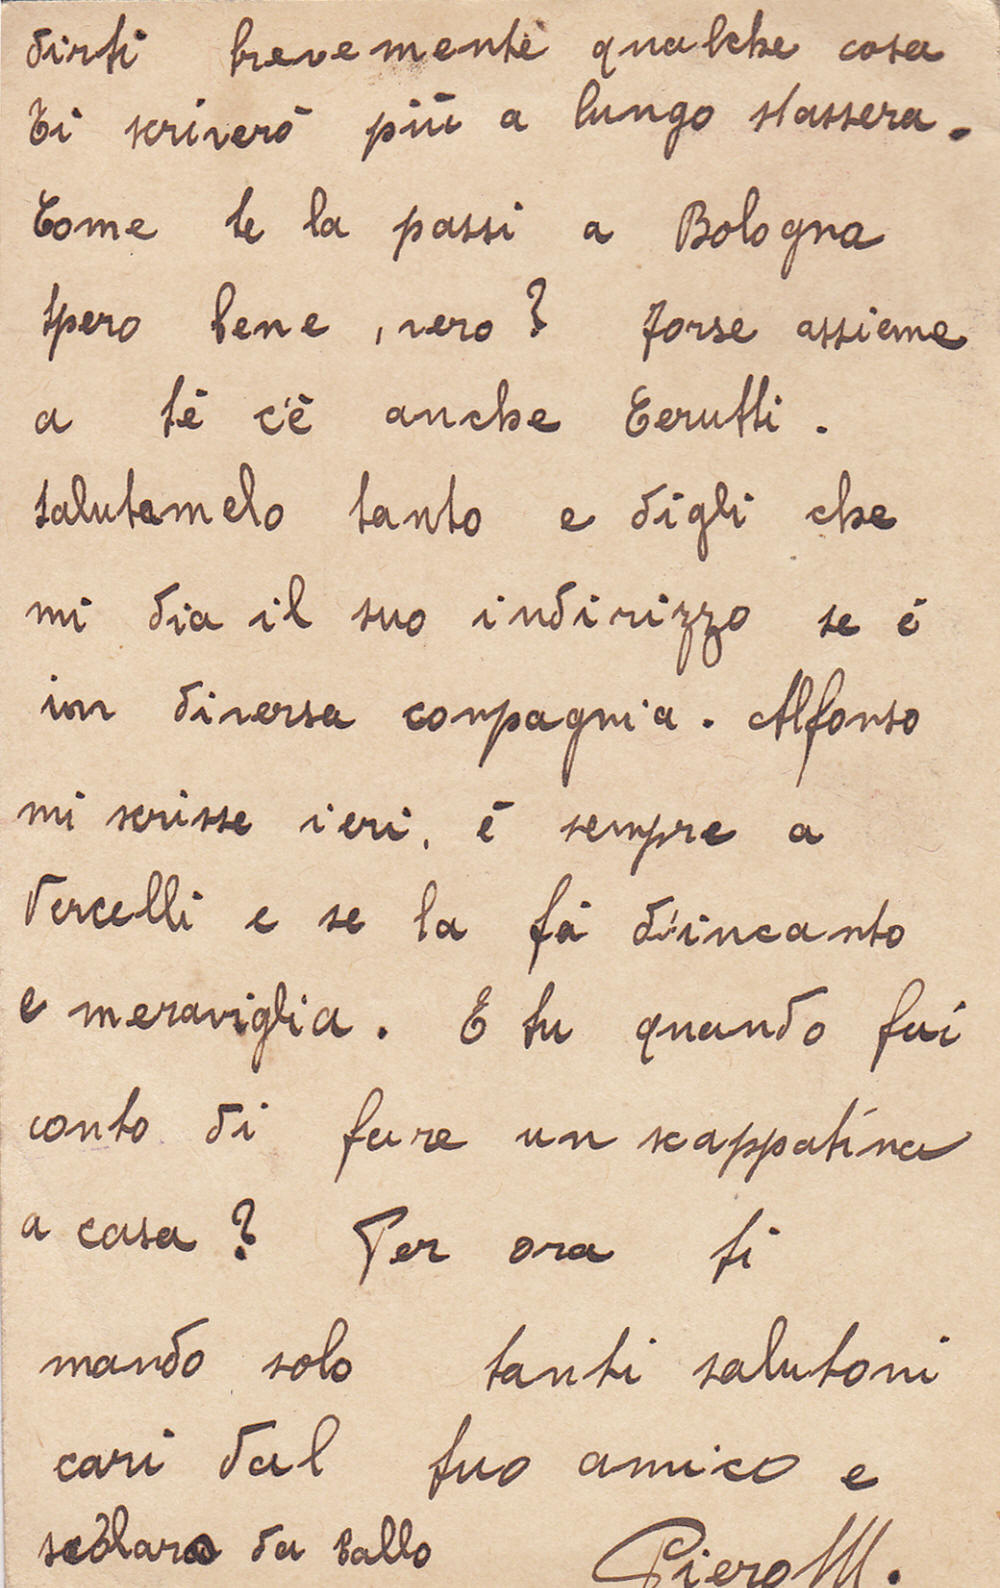 dirti brevemente qualche cosa
ti scriverò più a lungo stassera.
Come te la passi a Bologna
spero bene, vero? Forse assieme
a tè c'è anche Cerutti.
salutamelo tanto e digli che
mi dia il suo indirizzo se è
in diversa compagnia. Alfonso
mi scrisse ieri, è sempre a
Vercelli e se la fà d'incanto
e meraviglia. E tu quando fai
conto di fare un scappatina
a casa? Per ora ti
mando solo tanti salutoni
cari dal tuo amico e
scolaro da ballo Piero M.